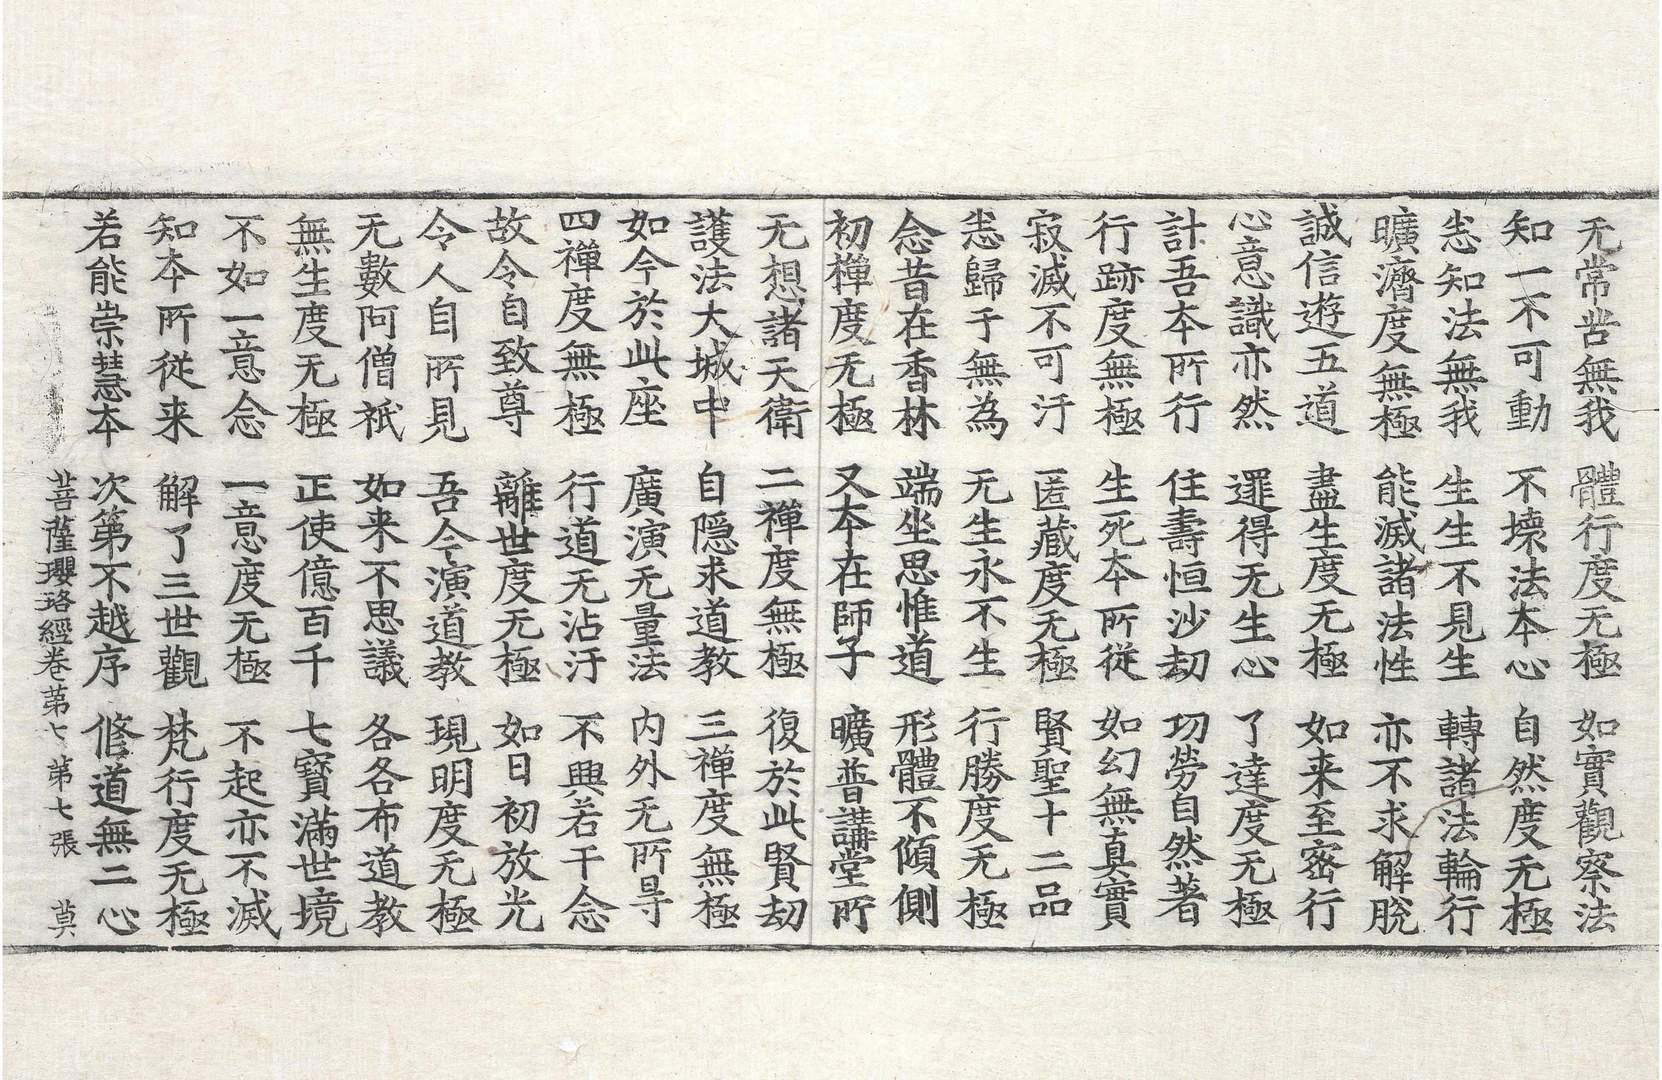 无常苦無我 體行度无極 如實觀察法
知一不可動 不壞法本心 自然度无極
悉知法無我 生生不見生 轉諸法輪行
曠濟度無極 能滅諸法性 亦不求解脫
誠信遊五道 盡生度无極 如来至密行
心意識亦然 逮得无生心 了達度无極
計吾本所行 住壽恒沙劫 功勞自然著
行跡度無極 生死本所從 如幻無真實
寂滅不可汙 匿藏度无極 賢聖十二品
悉歸于無為 无生永不生 行勝度无極
念昔在香林 端坐思惟道 形體不傾側
初禪度无極 又本在師子 曠普講堂所
无想諸天衛 二禪度無極 復於此賢劫
護法大城中 自隱求道教 三禪度無極
如今於此座 廣演无量法 內外无所㝵
四禪度無極 行道无沾汙 不興若干念
故令自致尊 離世度无極 如日初放光
令人自所見 吾今演道教 現明度无極
无數阿僧祇 如来不思議 各各布道教
無生度无極 正使億百千 七寶滿世境
不如一意念 一意度无極 不起亦不滅
知本所從来 解了三世觀 梵行度无極
若能崇慧本 次第不越序 修道無二心
菩薩瓔珞經卷第七 第七張 莫